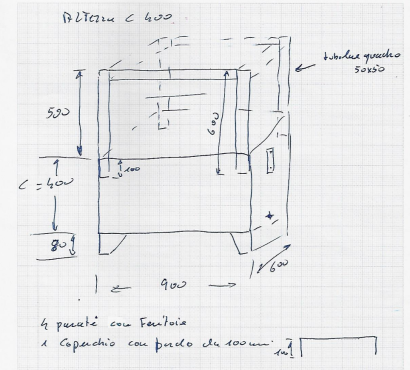 Altezza C 400
tubolare quadro
50x50
500
600
100
C = 400
80
600
900
4 pareti con Feritoie
1 Coperchio con bordo da 100 mm.
100